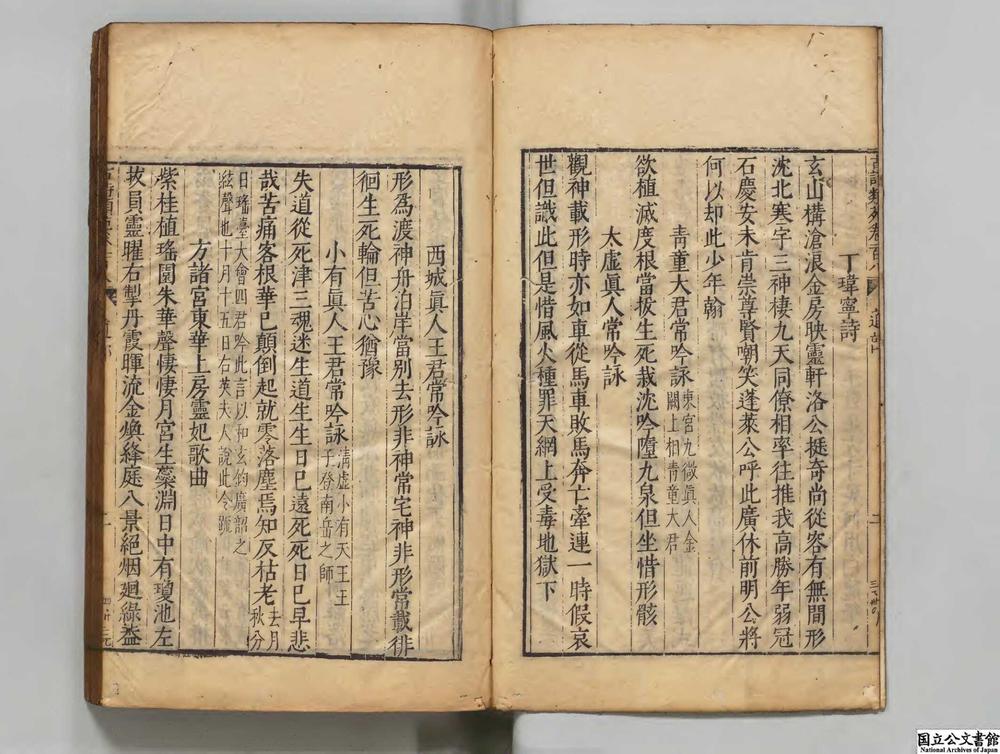 丁瑋寧詩
玄山構滄浪金房映靈軒洛公挺奇尚從容有無間形
沈北寒宇三神棲九天同僚相率往推我高勝年弱冠
石慶安未肯崇尊賢嘲笑蓬萊公呼此廣休前明公將
何以却此少年翰
青童大君常吟詠東宮九微眞人金
闕上相青童大君
欲植滅度根當拔生死栽沈吟墮九泉但坐惜形骸
太虛眞人常吟詠
觀神載形時亦如車從馬車敗馬奔亡牽連一時假哀
世但識此但是惜風火種罪天網上受毒地獄下
西城眞人王君常吟詠
形爲渡神舟泊岸當别去形非神常宅神非形常載徘
徊生死輪但苦心猶豫
小有眞人王君常吟詠清虛小有天王王
子登南岳之師
失道從死津三魂迷生道生生日已遠死死日已早悲
哉苦痛客根華已顛倒起就零落塵焉知反枯老去月
秋分
日瑤臺大會四君吟此言以和玄鈞廣韶之
絃聲也十月十五日右英夫人說此令疏
方諸宮東華上房靈妃歌曲
紫桂植瑤園朱華聲悽悽月宮生蘂淵日中有瓊池左
拔員靈曜右掣丹霞暉流金煥絳庭八景絕烟廻綠蓋
国立公文書館
National Archives of Japan